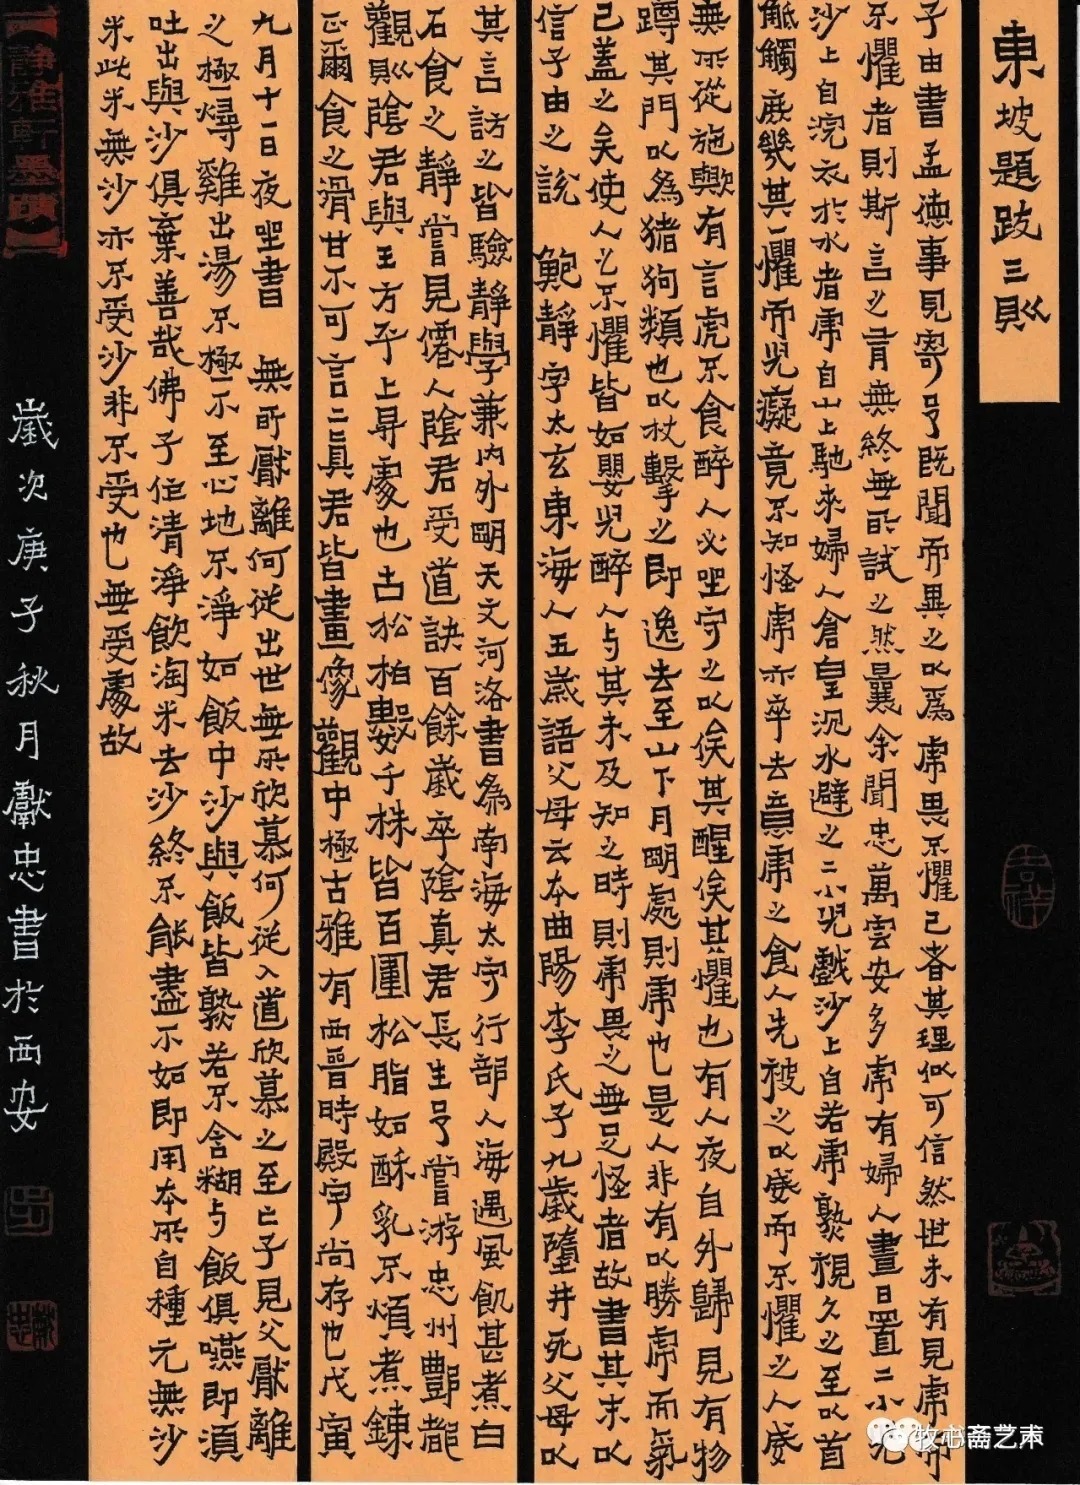 東坡題跋三則
子由書孟德事見寄予既聞而異之以為虎畏不懼己者其理似可信然世未有見虎而
不懼者則斯言之有無終無所試之然曩余聞忠萬雲安多虎有婦人晝日置二小兒
沙上自浣衣於水者虎自山上馳來婦人倉皇沉水避之二小兒戲沙上自若虎熟視久之至以首
觝觸庶幾其一懼而兒癡竟不知怪虎亦卒去意虎之食人先被之以威而不懼之人威
無所從施歟有言虎不食醉人必坐守之以俟其醒俟其懼也有人夜自外歸見有物
蹲其門以為猪狗類也以杖擊之即逸去至山下月明處則虎也是人非有以勝虎而氣
己蓋之矣使人之不懼皆如嬰兒醉人与其未及知之時則虎畏之無足怪者故書其末以
信子由之說　鮑靜字太玄東海人五歲語父母云本曲陽李氏子九歲墮井死父母以
其言訪之皆驗靜學兼內外明天文河洛書為南海太守行部入海遇風飢甚煮白
石食之靜嘗見僊人陰君受道訣百餘歲卒陰真君長生予嘗游忠州酆都
觀則陰君與王方平上昇處也古松柏數千株皆百圍松脂如酥乳不煩煮鍊
正爾食之滑甘不可言二真君皆畫像觀中極古雅有西晉時殿宇尚存也戊寅
九月十一日夜坐書　無所厭離何從出世無所欣慕何從入道欣慕之至亡子見父厭離
之極燖雞出湯不極不至心地不淨如飯中沙與飯皆熟若不含糊与飯俱嚥即須
吐出與沙俱棄善哉佛子作清淨飲淘米去沙終不能盡不如即用本所自種元無沙
米此米無沙亦不受沙非不受也無受處故
歲次庚子秋月獻忠書於西安
靜雅軒墨蹟
吉祥
牧心斋艺术